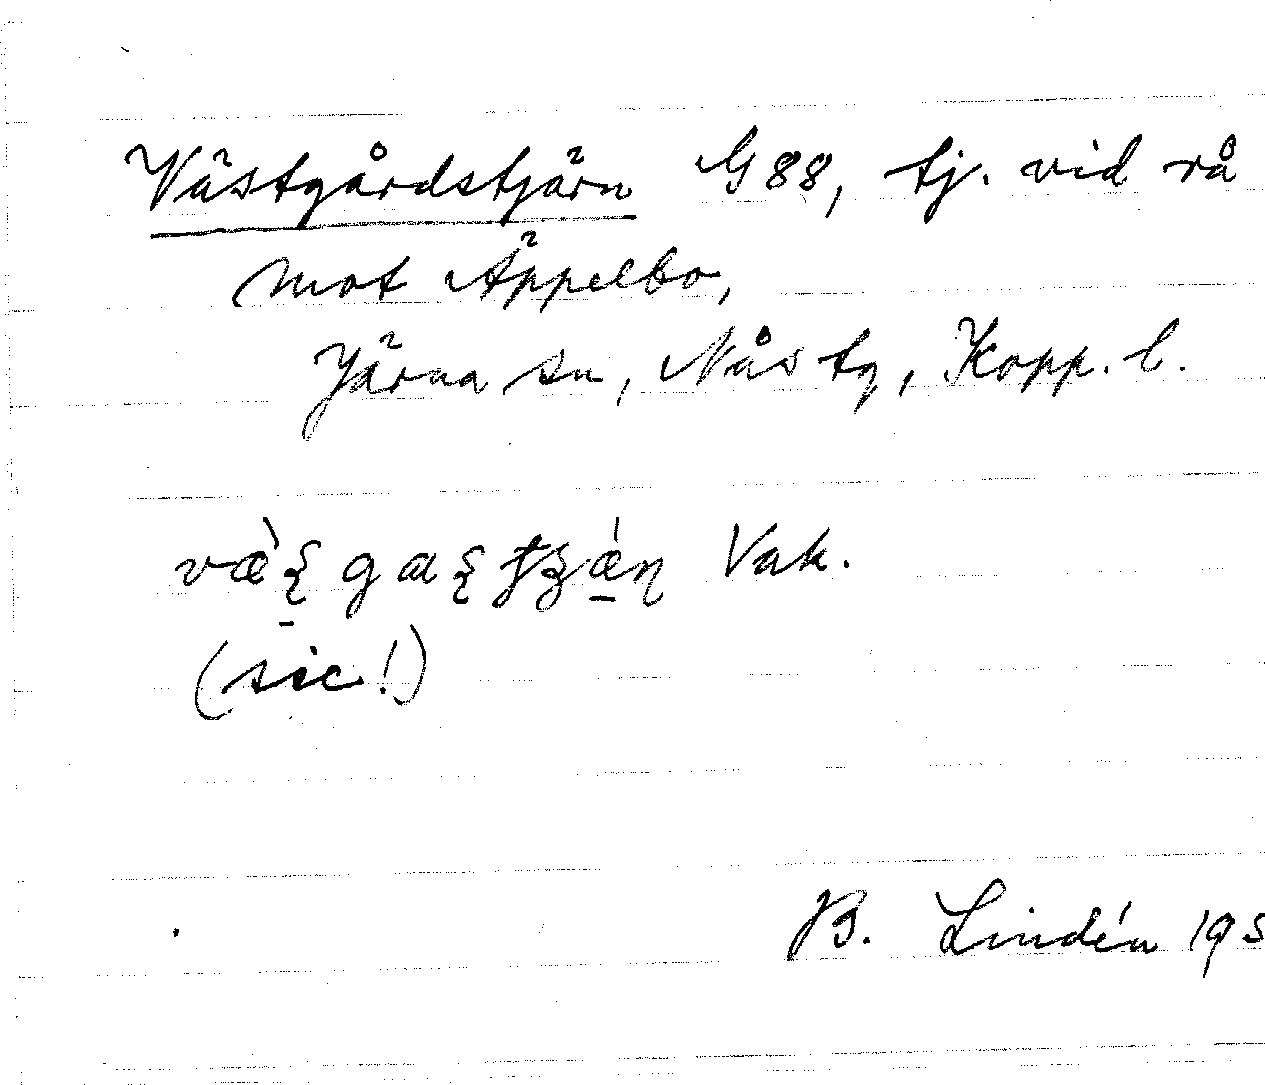 Västgårdstjärn G88, tj. vid rå
mot Äppelbo,
Järna sn, Nås tg, Kopp. l.
Vak.
(sic!)
B. Lindén 195